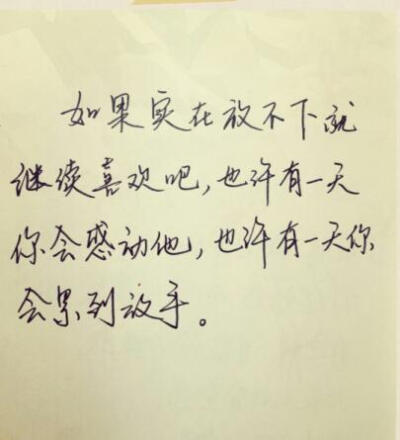 如果实在放不下就
继续喜欢吧,也许有一天
你会感动他,也许有一天你
会累到放手。